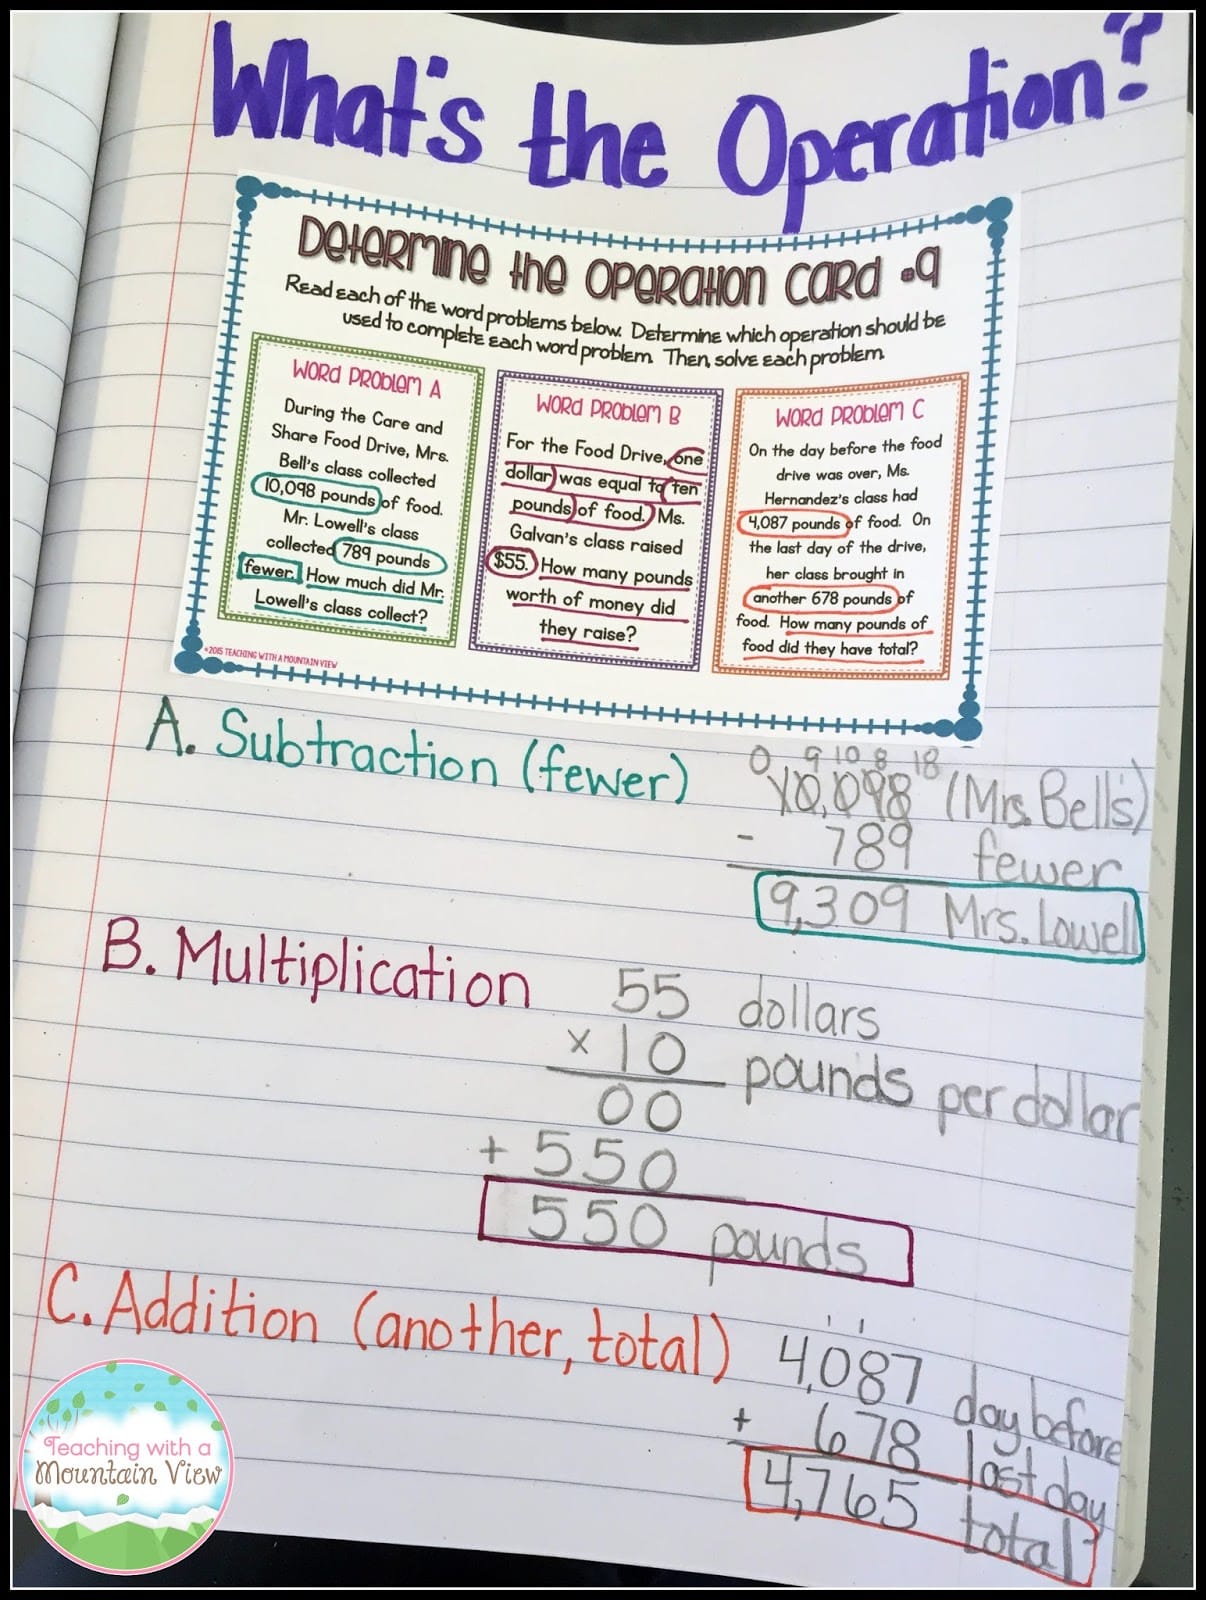 What's the Operation?
Determine the Operation Card #9
Read each of the word problems below. Determine which operation should be
used to complete each word problem. Then, solve each problem.
Word Problem A
During the Care and
Share Food Drive, Mrs.
Bell's class collected
10,098 pounds of food.
Mr. Lowell's class
collected 789 pounds
fewer. How much did Mr.
Lowell's class collect?
Word Problem B
For the Food Drive, one
dollar was equal to ten
pounds of food. Ms.
Galvan's class raised
$55. How many pounds
worth of money did
they raise?
Word Problem C
On the day before the food
drive was over, Ms.
Hernandez's class had
4,087 pounds of food. On
the last day of the drive,
her class brought in
another 678 pounds of
food. How many pounds of
food did they have total?
©2015 TEACHING WITH A MOUNTAIN VIEW
A. Subtraction (fewer)
0 9 10 8 18
10,098 (Mrs. Bell's)
- 789 fewer
9,309 Mrs. Lowell
B. Multiplication
55 dollars
x 10 pounds per dollar
00
+ 550
550 pounds
C. Addition (another, total)
1 1
4,087 day before
+ 678 last day
4,765 total
Teaching with a
Mountain View